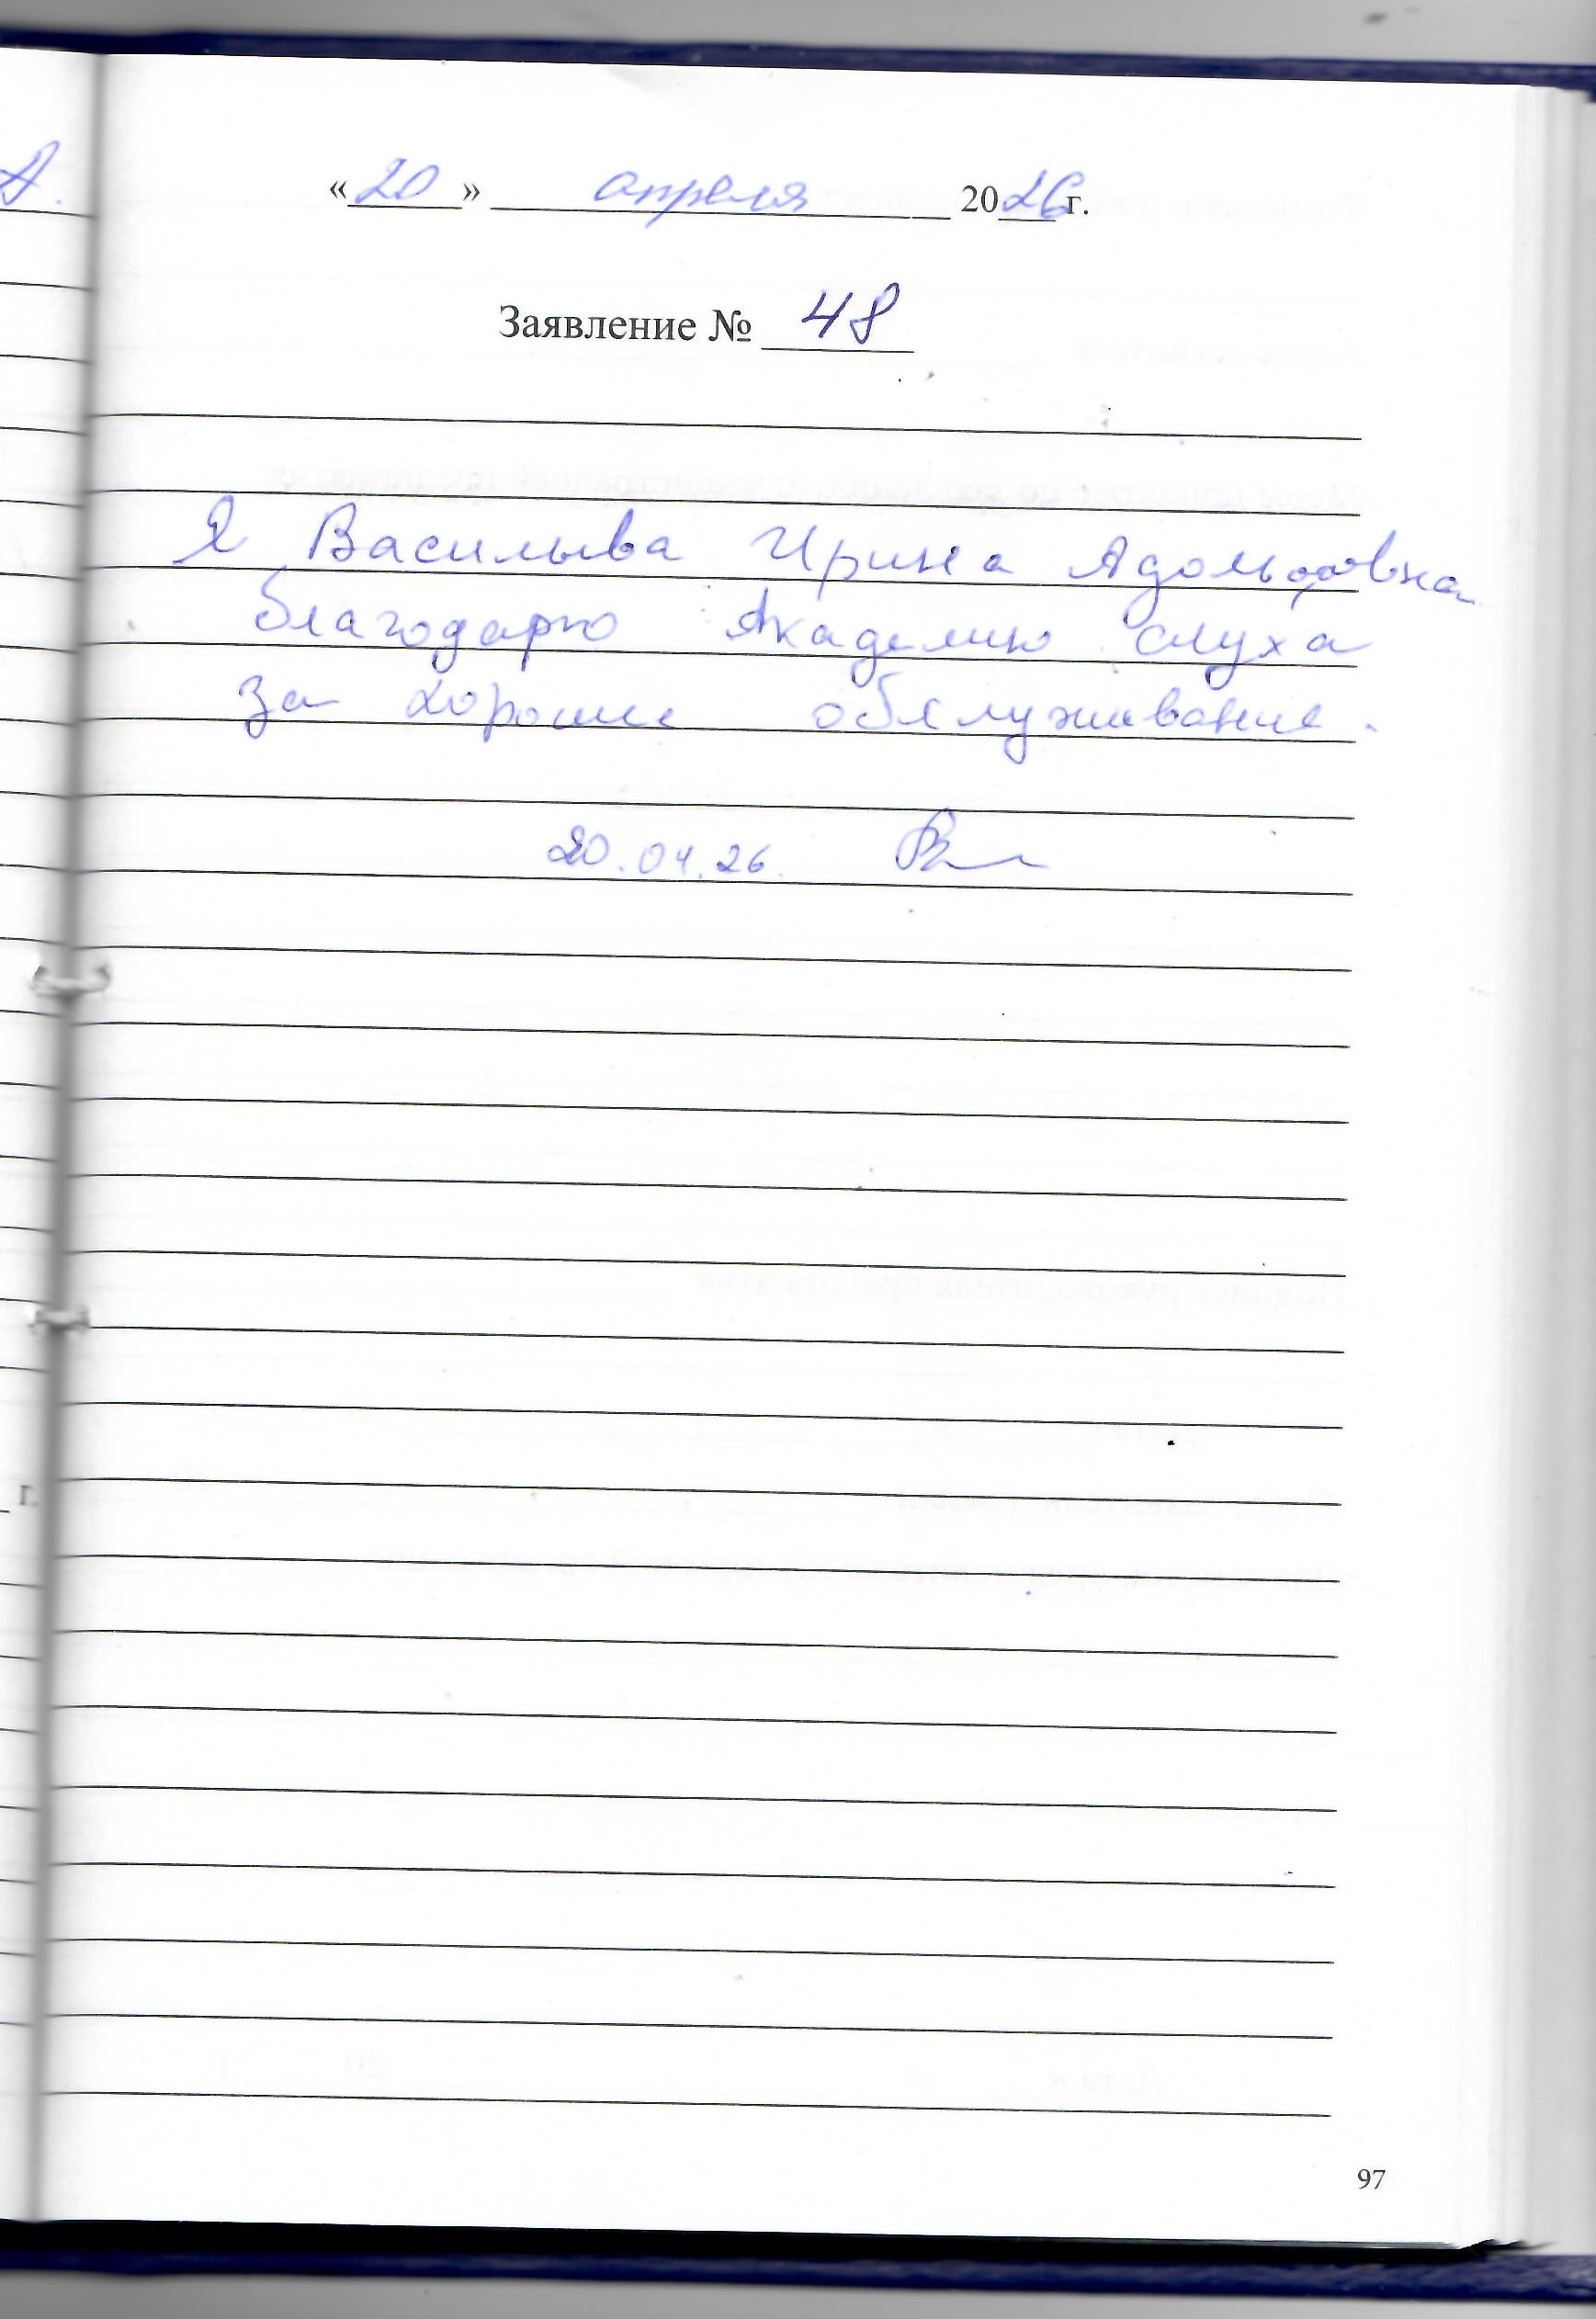 «20» апреля 2026 г.
Заявление № 48
Я Васильева Ирина Адольфовна
благодарю Академию слуха
за хорошее обслуживание.
20.04.26.
97